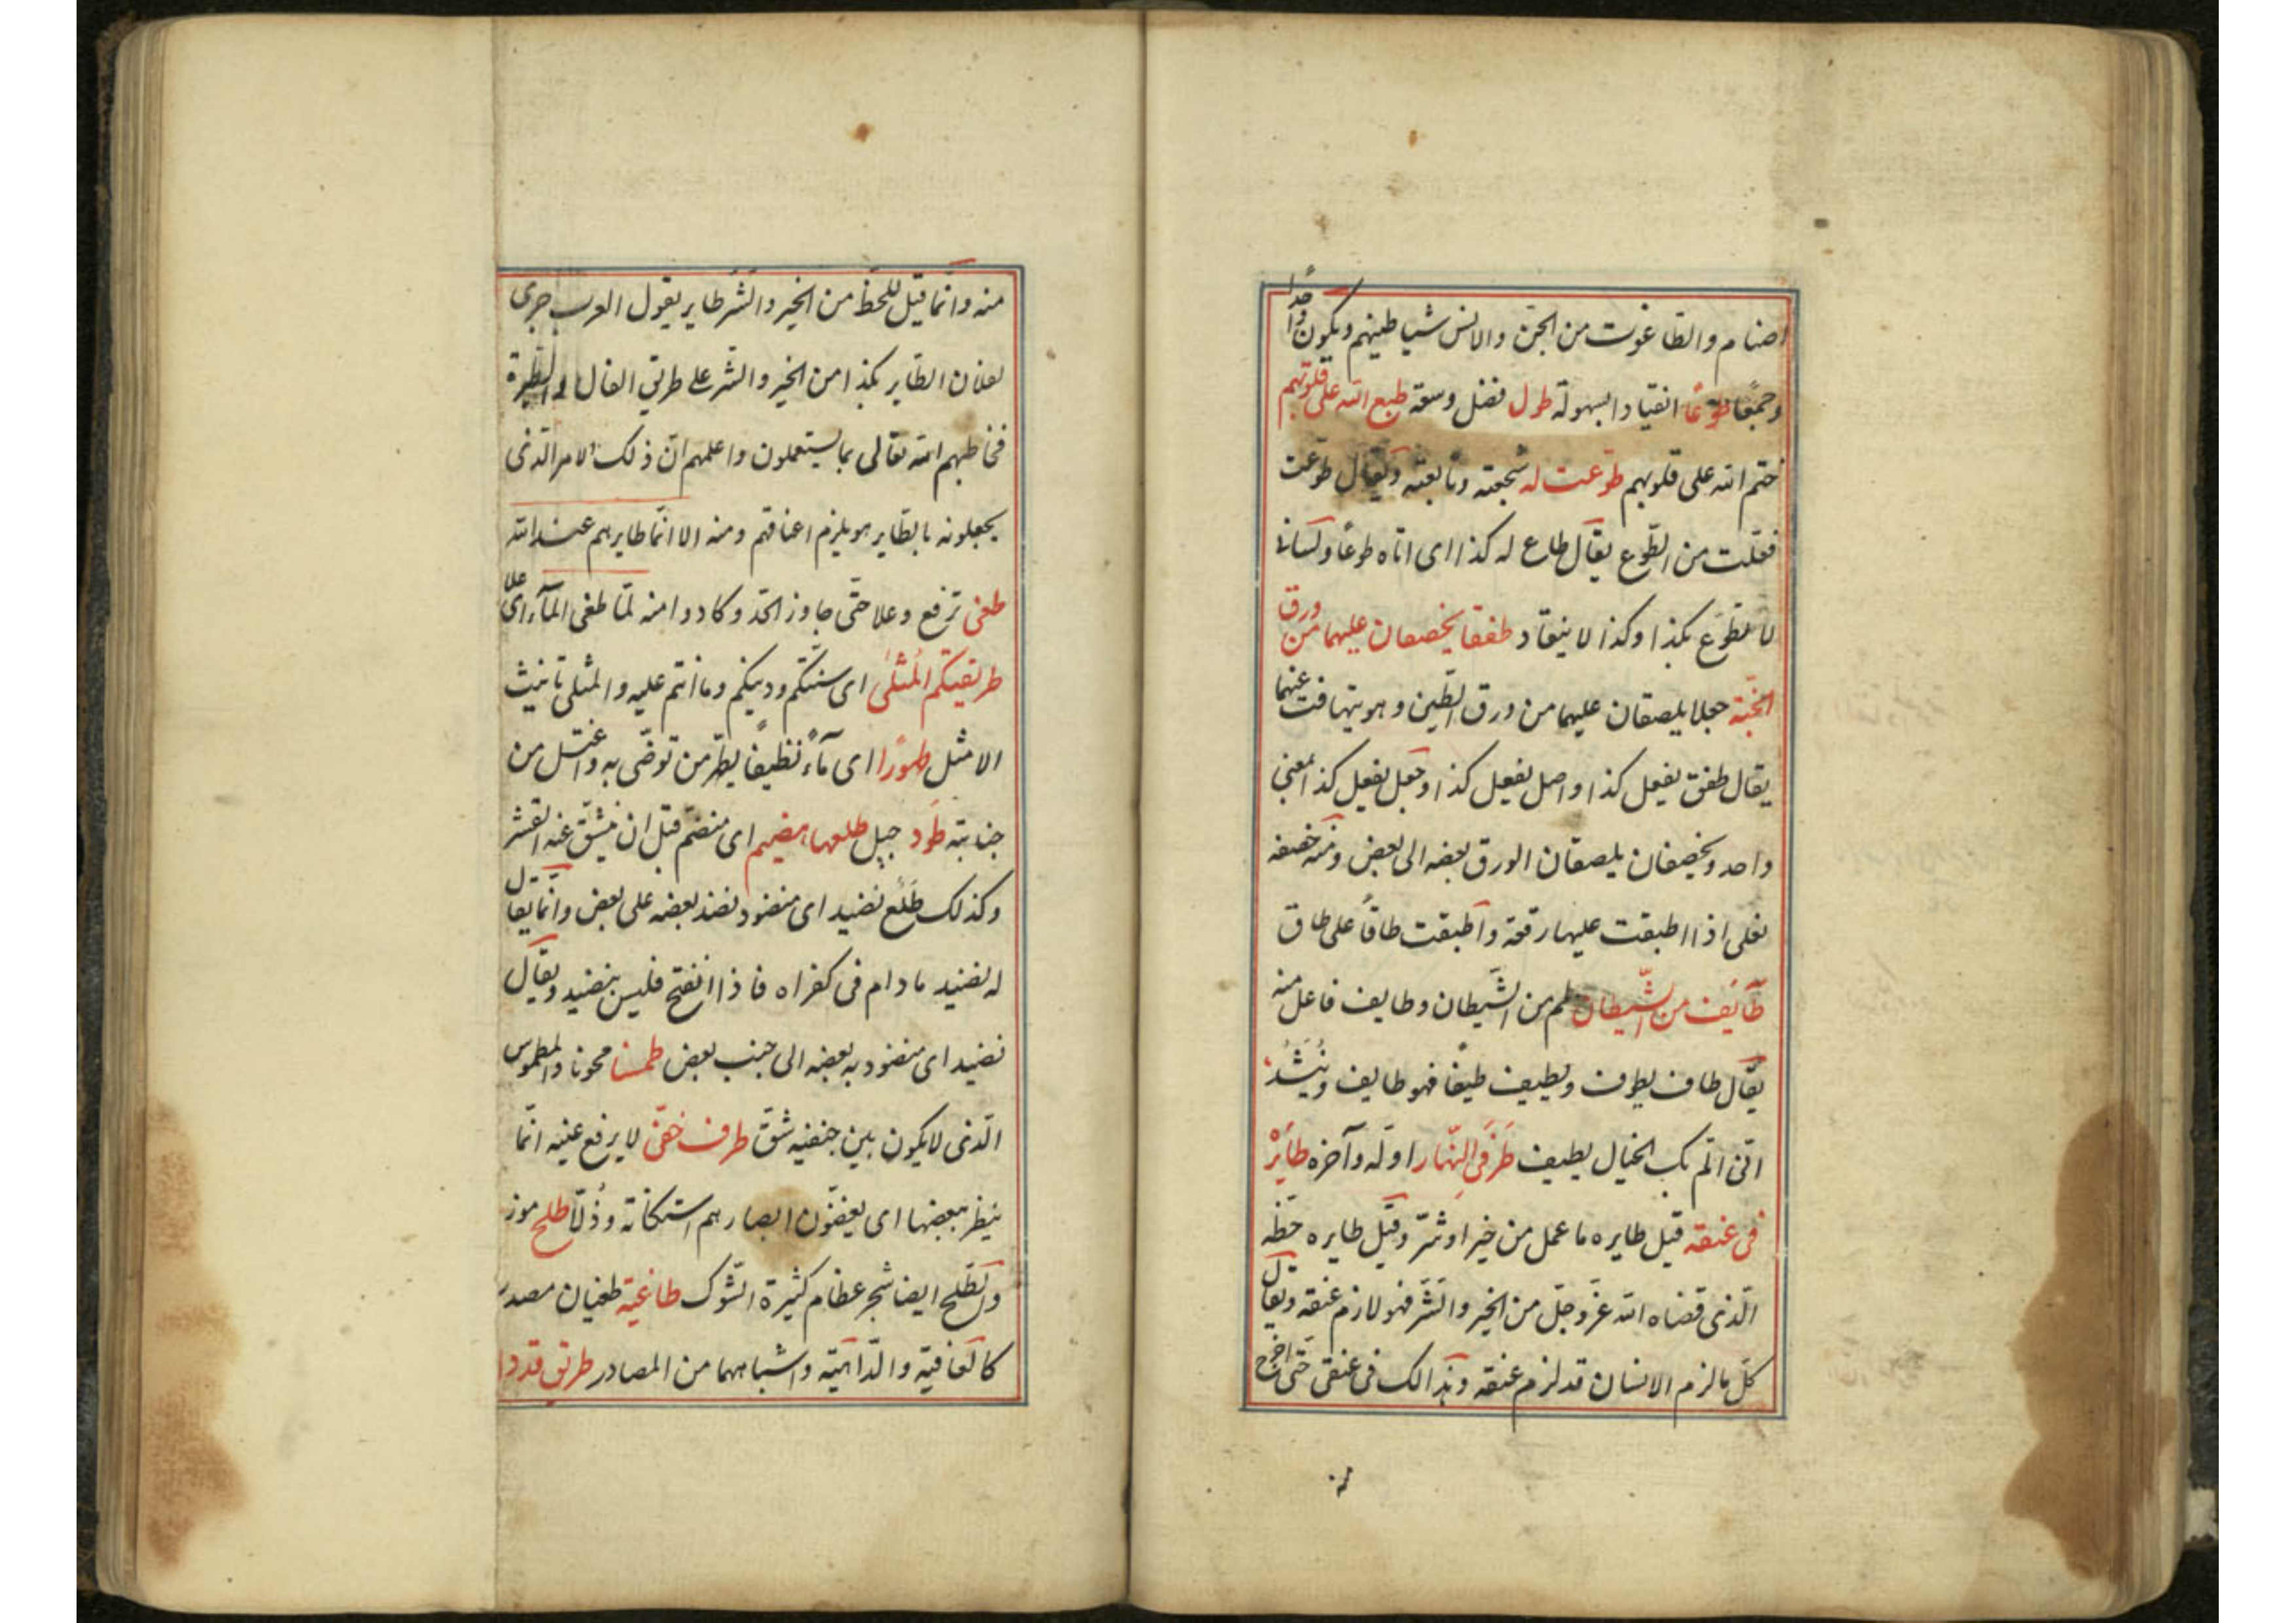 اصنام والطاغوت من الجنّ والانس شياطينهم ويكون واحدًا
وجمعًا طوعًا انقيادا بسهولة طول فضل وسعة طبع الله على قلوبهم
ختم الله على قلوبهم طوّعت له شجعته وتابعته ويقال طوّعت
فعّلت من الطّوع يقال طاع له كذا اى اتاه طوعًا ولسانى
لا يطوّع بكذا وكذا لا ينقاد طفقا يخصفان عليهما من ورق
الجنّة جعلا يلصقان عليهما من ورق التّين وهو يتهافت عنهما
يقال طفق يفعل كذا واصل يفعل كذا وجعل يفعل كذا بمعنى
واحد ويخصفان يلصقان الورق بعضه الى بعض ومنه خصفه
نعلى اذا اطبقت عليها رقعة واطبقت طاقًا على طاق
طآئف من الشّيطان لمم من الشّيطان وطايف فاعل منه
يقال طاف يطوف ويطيف طيفًا فهو طايف ويُنشَدُ
انّى المّ بك الخيال يطيف طَرَفَىِ النّهار اوّله وآخره طائرَهُ
فى عنقه قيل طايره ما عمل من خير اوشرّ وقيل طايره حظّه
الّذى قضاه الله عزّ وجلّ من الخير والشّر فهو لازم عنقه ويقال
كلّ ما لزم الانسان قد لزم عنقه وهذا لك فى عنقى حتّى اخرج
منه
منه وانّما قيل للحظّ من الخير والشّر طاير يقول العرب جرى
لفلان الطّاير بكذا من الخير والشّر على طريق الفال والطّيرة
فخاطبهم الله تعالى بما يستعملون واعلمهم انّ ذلك الامر الّذى
يجعلونه بالطّاير هو يلزم اعناقهم ومنه الا انّما طايرهم عند الله
طغى ترفع وعلا حتّى جاوز الحدّ وكاد ومنه لمّا طغى المآء اى علا
طريقتكم المُثلى اى سنتكم ودينكم وما انتم عليه والمثلى تانيث
الامثل طهورًا اى مآءً نظيفًا يطهّر من توضّى به واغتسل من
جنابته طَود جبل طلعها هضيم اى منضمّ قبل ان ينشقّ عنه القشر
وكذلك طَلع نضيد اى منضود نضد بعضه على بعض وانّما يقال
له نضيد ما دام فى كفراه فاذا انفتح فليس بنضيد ويقال
نضيد اى منضود به بعضه الى جنب بعض طمسنا محونا والمطموس
الّذى لا يكون بين جفنيه شقّ طرف خفىّ لا يرفع عينيه انّما
ينظر ببعضها اى يغضّون ابصارهم استكانة وذُلّا طلح موز
والطّلح ايضا شجر عظام كثيرة الشّوك طاغية طغيان مصدر
كالعافية والدّاهية واشباههما من المصادر طريق قددا